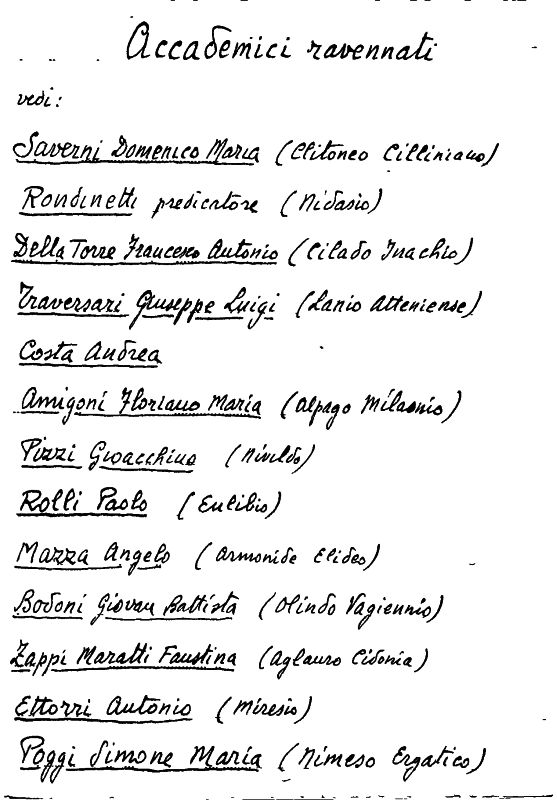 Accademici ravennati
vedi:
Saverni Domenico Maria (Clitoneo Cilliniano)
Rondinetti predicatore (Nidasio)
Della Torre Francesco Antonio (Cilado Inachio)
Traversari Giuseppe Luigi (Lanio Atteniense)
Costa Andrea
Amigoni Floriano Maria (Alpago Milaonio)
Pizzi Gioacchino (Nivildo)
Rolli Paolo (Eulibio)
Mazza Angelo (Armonide Elideo)
Bodoni Giovan Battista (Olindo Vagiennio)
Zappi Maratti Faustina (Aglauro Cidonia)
Ettorri Antonio (Miresio)
Poggi Simone Maria (Nimeso Ergatico)